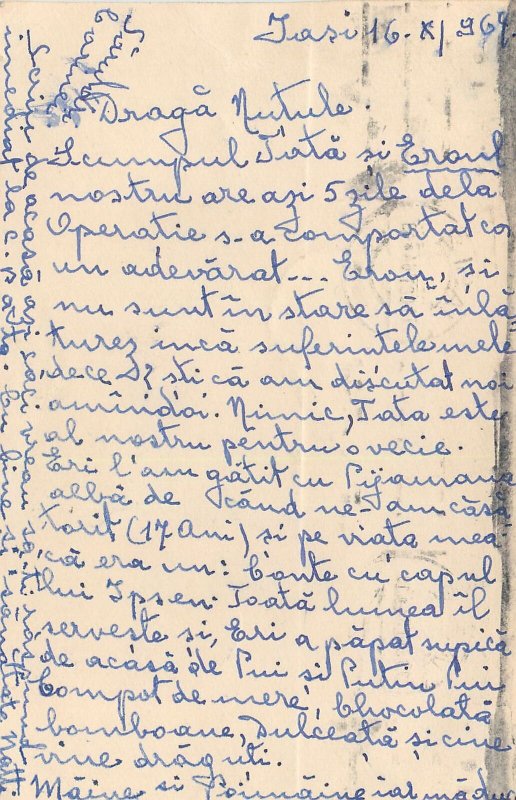 Iasi 16. X/ 964.
Dragă Nutule.
Scumpul Tată si Eroul
nostru are azi 5 zile dela
Operatie s-a comportat ca
un adevărat... Erou, si
nu sunt în stare să înlă
turez incă suferintele mele
sti că am discutat noi
amîndoi. Nimic, Tata este
al nostru pentru o vecie.
Eri l'am gătit cu Pijamaua
albă de când ne-am căsă
torit (17 Ani) si pe viata mea
că era un: Conte cu capul
lui Ipsen. Toată lumea îl
serveste si, Eri a păpat supică
de acasă de Pui si Putin Pui
Compot de mere, Chocolată
bomboane, Dulceată si cine
vine drăguti.
Mâine si Poimâine iar mă duc
Scriti de acasă
imediat la c. p. asta.